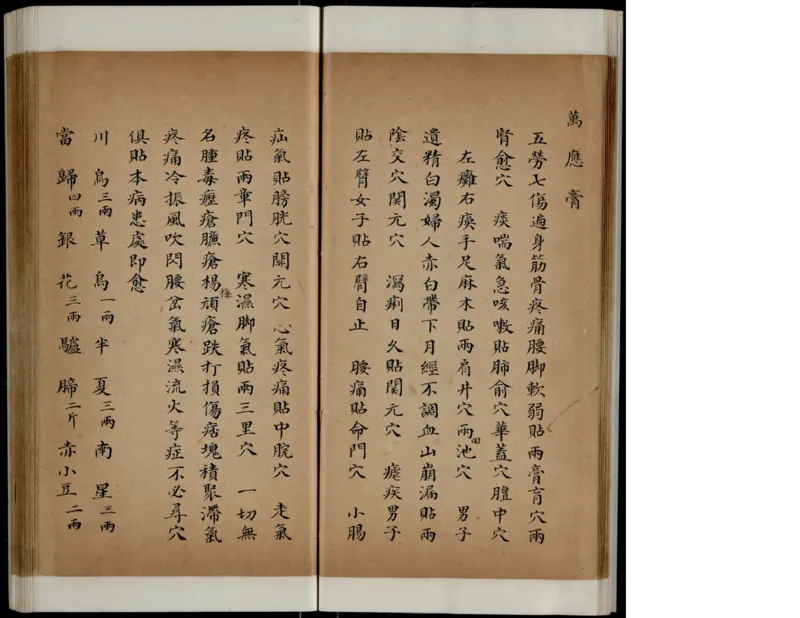 萬應膏
五勞七傷遍身筋骨疼痛腰脚軟弱貼兩膏肓穴兩
腎愈穴 痰喘氣急咳嗽貼肺俞穴華蓋穴膻中穴
左癱右瘓手足麻木貼兩肩井穴兩曲池穴 男子
遺精白濁婦人赤白帶下月經不調血山崩漏貼兩
陰交穴関元穴 瀉痢日久貼関元穴 瘧疾男子
貼左臂女子貼右臂自止 腰痛貼命門穴 小腸
疝氣貼膀胱穴関元穴 心氣疼痛貼中脘穴 走氣
疼貼兩章門穴 寒濕脚氣貼兩三里穴 一切無
名腫毒瘂瘡臁瘡楊梅頑瘡跌打損傷痞塊積聚滯氣
疼痛冷振風吹閃腰岔氣寒濕流火等症不必尋穴
俱貼本病患處即愈
川烏三兩草烏一兩半夏三兩南星三兩
當歸四兩銀花三兩驢蹄二斤赤小豆二兩